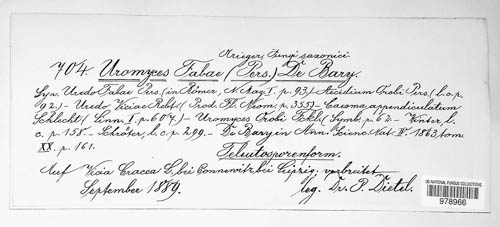 Krieger, fungi saxonici
704. Uromyces Fabae (Pers.) De Bary.
Syn. Uredo Fabae Pers. (in Römer, N. Mag. I. p. 93) - Aecidium Orobi Pers. (l. c. p.
92.) - Uredo Viciae Rabt. (Prod. Fl. Neom. p. 355) - Caeoma appendiculatum
Schlecht. (Linn. I. p. 607.) - Uromyces Orobi Fckl. (Symb. p. 62 - Winter, l.
c. p. 158. - Schröter, l. c. p. 299. - De Bary in Ann. Scienc. Nat. IV. 1863, tom.
XX. p. 161.
Teleutosporenform.
Auf Vicia Cracca L. bei Connewitz bei Leipzig; verbreitet
September 1889.
leg. Dr. P. Dietel.
US NATIONAL FUNGUS COLLECTIONS
978966